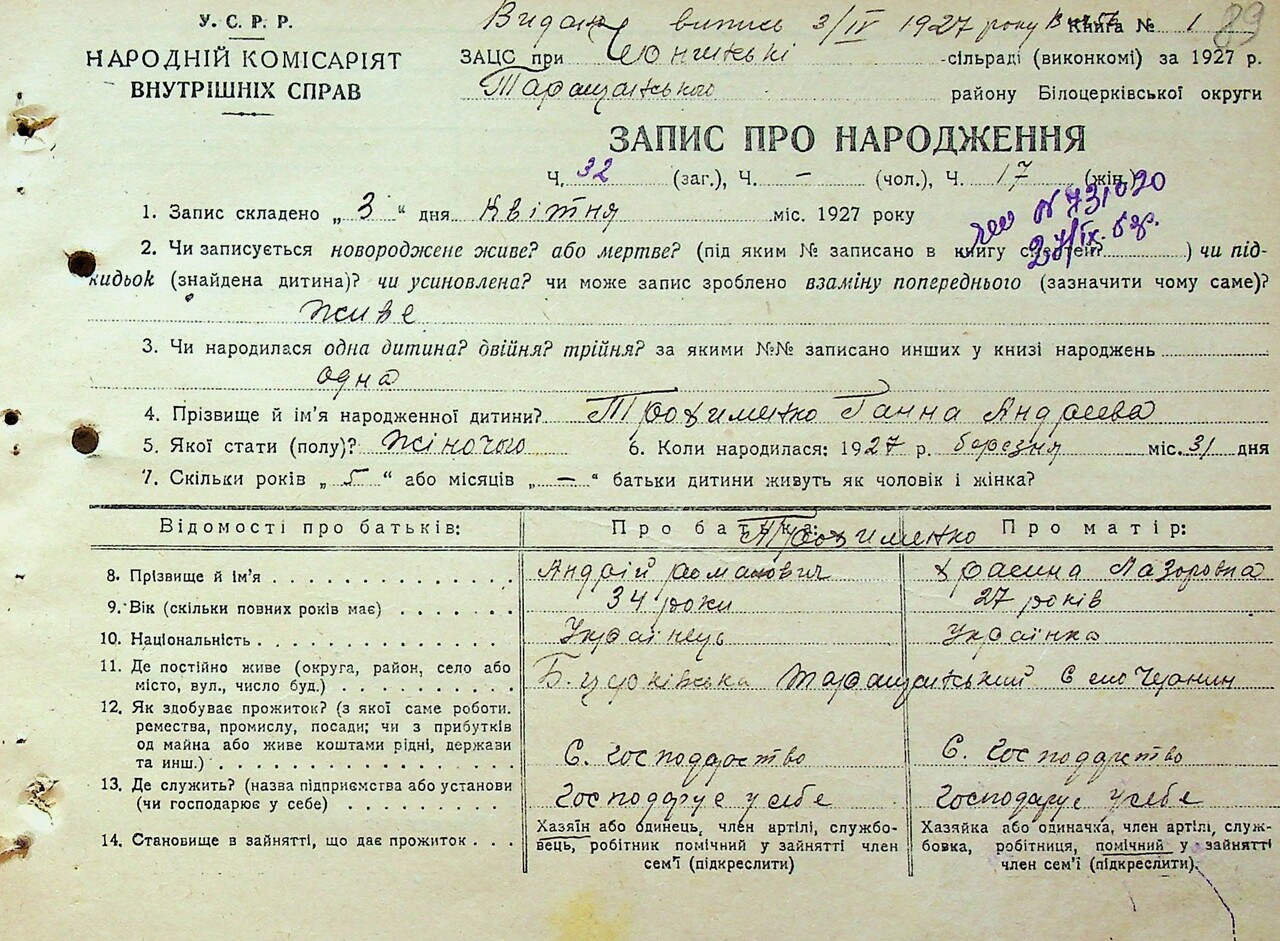 У. С. Р. Р.
НАРОДНІЙ КОМІСАРІЯТ
ВНУТРІШНІХ СПРАВ
Видана випись 3/IV 1927 року Книга № 1 89
ЗАЦС при сільраді (виконкомі) за 1927 р.
Таращанського району Білоцерківської округи
ЗАПИС ПРО НАРОДЖЕННЯ
Ч. 32 (заг.), Ч. – (чол.), Ч. 17 (жін.)
1. Запис складено „ 3 “ дня Квітня міс. 1927 року
2. Чи записується новороджене живе? або мертве? (під яким № записано в книгу смертей? ) чи під-
кидьок (знайдена дитина)? чи усиновлена? чи може запис зроблено взаміну попереднього (зазначити чому саме)?
Живе
3. Чи народилася одна дитина? двійня? трійня? за якими №№ записано инших у книзі народжень
Одна
4. Прізвище й ім'я народженної дитини? Трохименко Ганна Андреева
5. Якої стати (полу)? Жіночого 6. Коли народилася: 1927 р. березня міс. 31 дня
7. Скільки років „ 5 “ або місяців „ – “ батьки дитини живуть як чоловік і жінка?
Відомості про батьків: Про батька: Про матір:
Трохименко
8. Прізвище й ім'я Андрій романович Лазоровна
9. Вік (скільки повних років має) 34 роки 27 років
10. Національність Українець Українка
11. Де постійно живе (округа, район, село або
місто, вул., число буд.) Таращанський Село Чернин
12. Як здобуває прожиток? (з якої саме роботи.
ремества, промислу, посади; чи з прибутків
од майна або живе коштами рідні, держави
та инш.) С. господарство С. господарство
13. Де служить? (назва підприємства або установи
(чи господарює у себе) Господарує у себе Господарує у себе
14. Становище в зайнятті, що дає прожиток
Хазяїн або одинець, член артілі, службо-
вець, робітник помічний у зайнятті член
сем'ї (підкреслити)
Хазяйка або одиначка, член артілі, служ-
бовка, робітниця, помічний у зайнятті
член сем'ї (підкреслити).